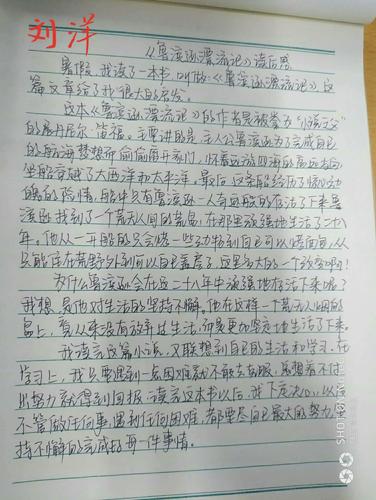 刘洋
《鲁滨逊漂流记》读后感
暑假,我读了一本书,叫做《鲁滨逊漂流记》这
篇文章给了我很大的启发。
这本《鲁滨逊漂流记》的作者是被誉为"小说之父"
的丹尼尔·笛福。主要讲的是:主人公鲁滨逊为了完成自己
的航海梦想而偷偷离开家门,怀着远游四海的高远志向
坐船穿越了大西洋和太平洋。最后,这条船经历了惊心动
魄的险情,船中只有鲁滨逊一人奇迹般的存活了下来鲁
滨逊找到了一个荒无人间的荒岛,在那里顽强地生活了二十八
年。他从一开始的只会
只能住在荒野外到可以自己盖房子,这是多大的一个改变啊!
为什么鲁滨逊会在这二十八年中顽强地存活下来呢?
我想,是他对生活的坚持不懈。他在这样一个荒无人烟的
岛上,看从来没有放弃过生活,而是更加坚定地生活了下来。
我读完这篇小说,又联想到自己的生活和学习。在
学习上,我只要遇到一点困难就不敢去克服,总想着不付
出努力就得到回报。读完这本书以后,我下定决心,以后
不管做任何事,遇到任何困难,都要尽自己最大的努力,坚
持不懈的完成好每一件事情。
SHOT ON